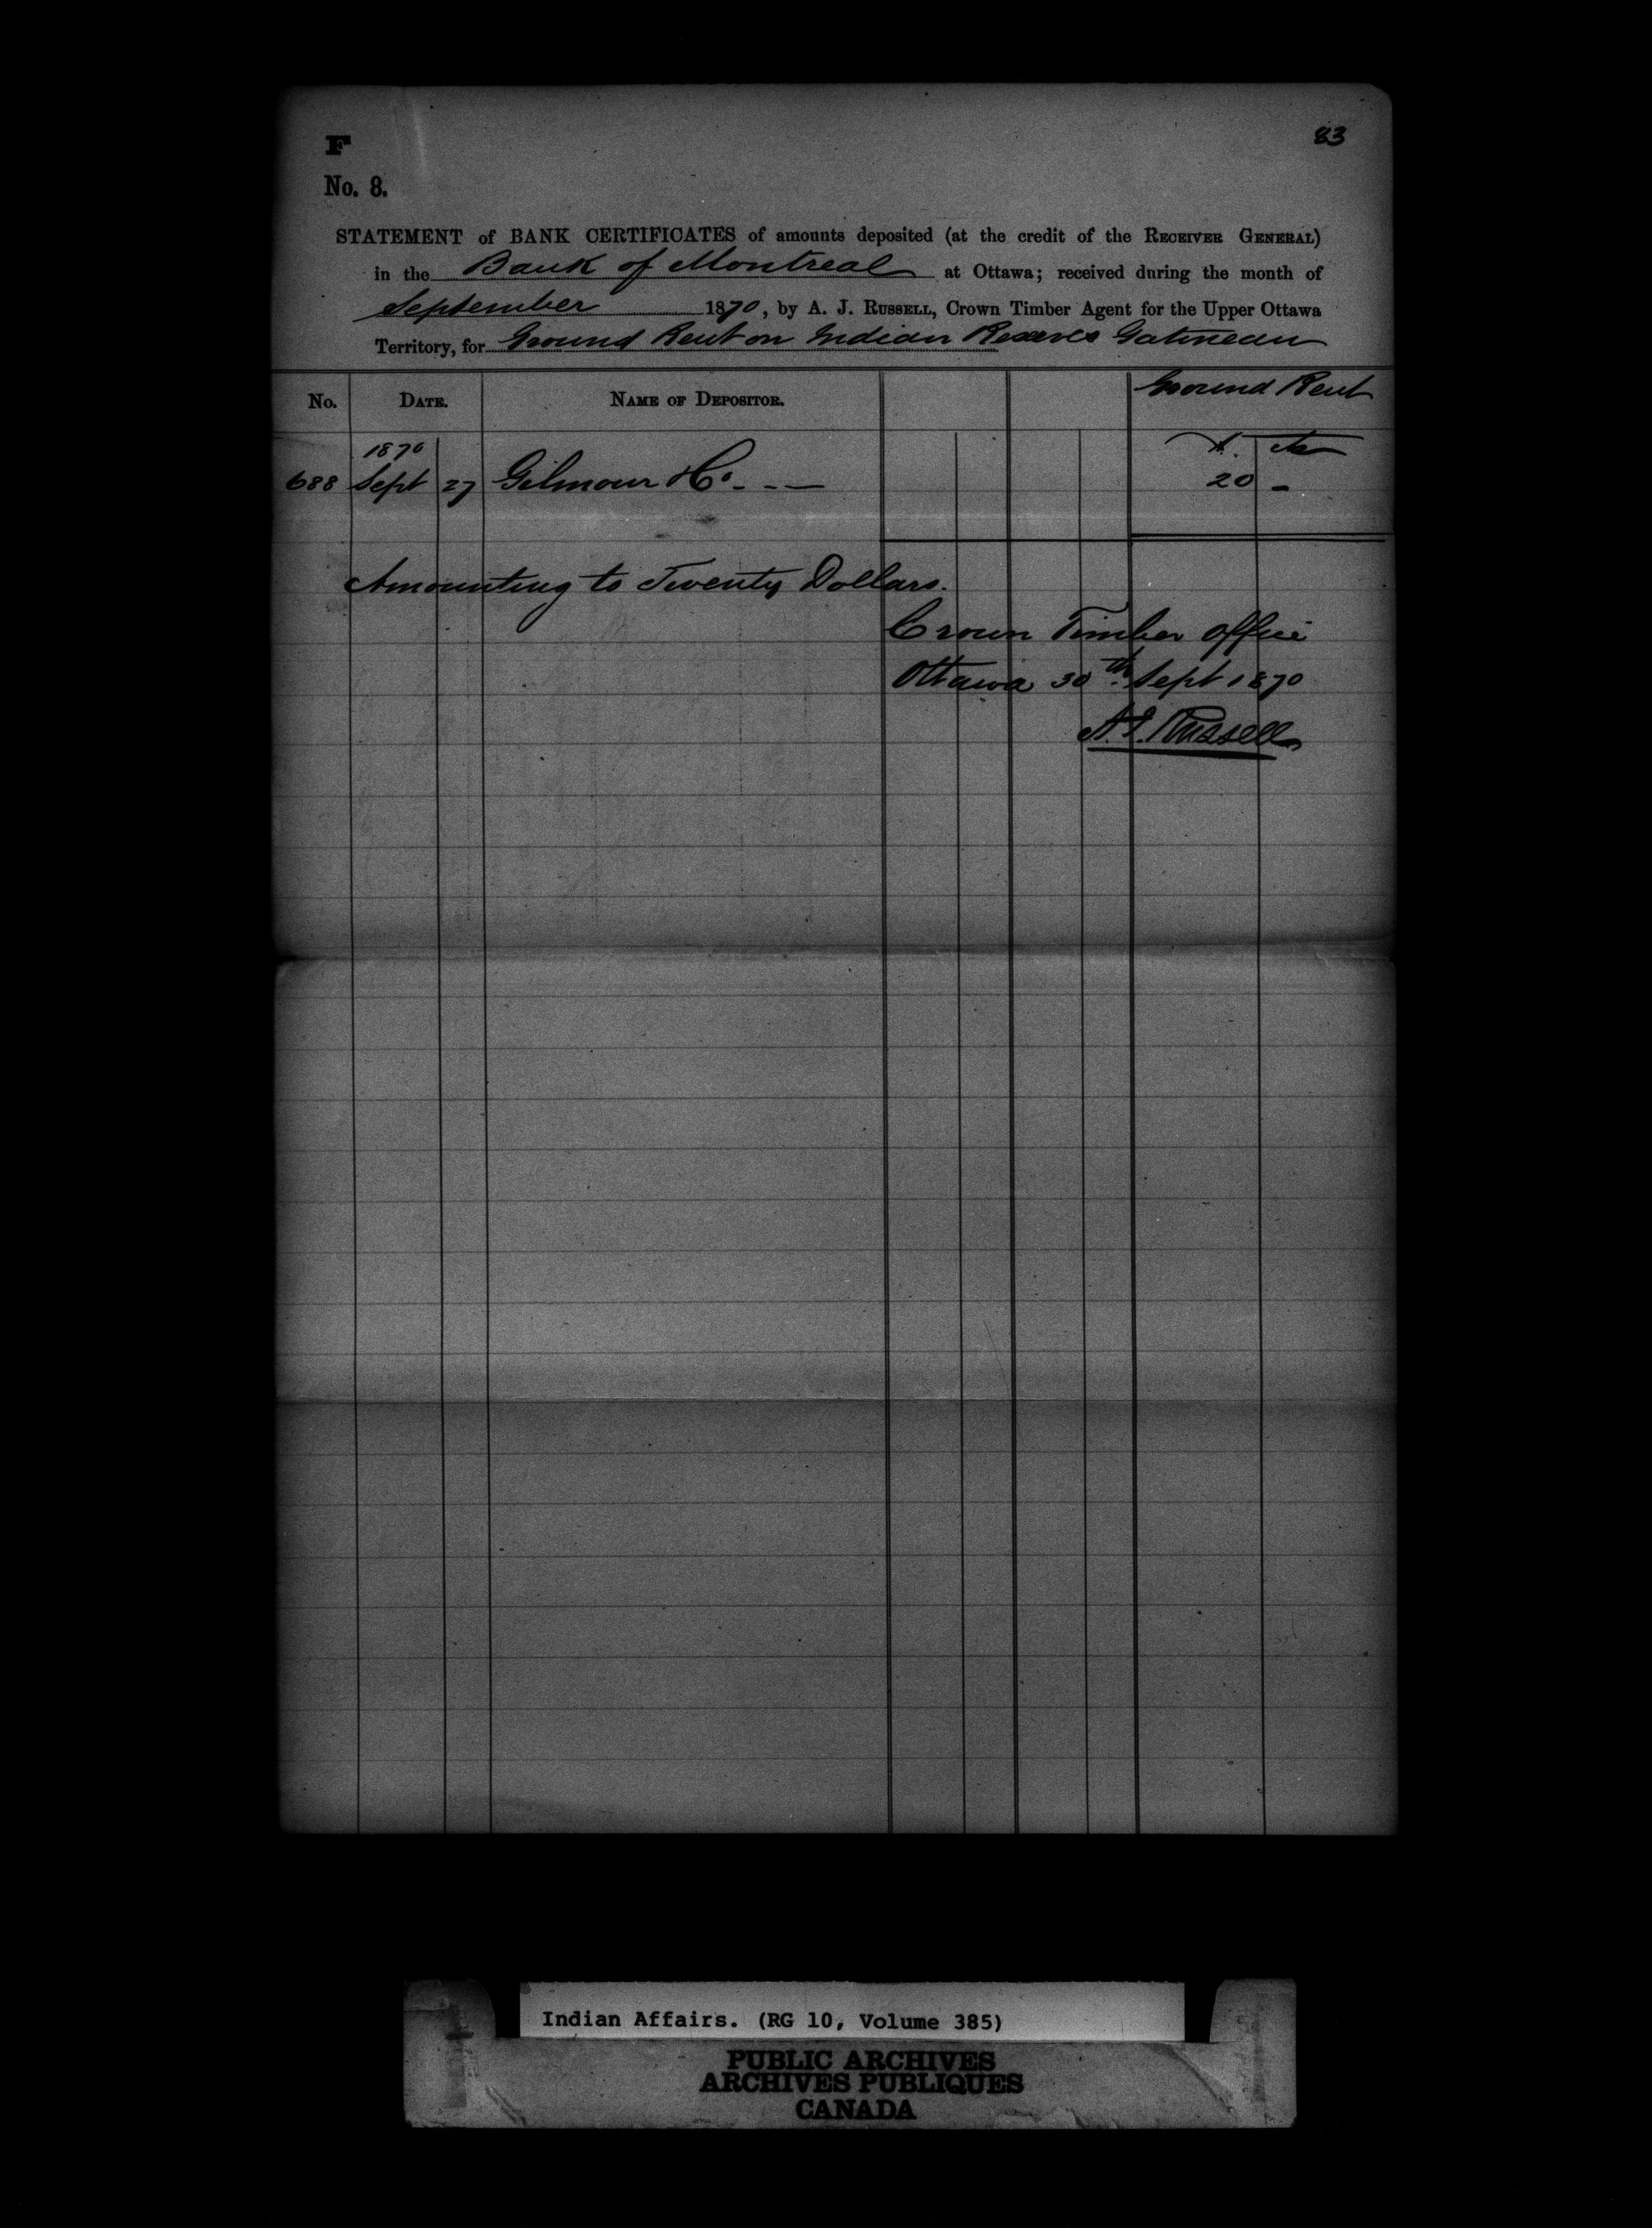 F
83
No. 8.
STATEMENT of BANK CERTIFICATES of amounts deposited (at the credit of the RECEIVER GENERAL)
in the Bank of Montreal at Ottawa; received during the month of
September 1870, by A. J. RUSSELL, Crown Timber Agent for the Upper Ottawa
Territory, for Ground Rent on Indian Reserves Gatineau
No. DATE. NAME OF DEPOSITOR. Ground Rent
1870 $ cts
688 Sept 27 Gilmour & Co - - — 20 -
Amounting to Twenty Dollars.
Crown Timber Office
Ottawa 30th Sept 1870
A. J. Russell
Indian Affairs. (RG 10, Volume 385)
PUBLIC ARCHIVES
ARCHIVES PUBLIQUES
CANADA